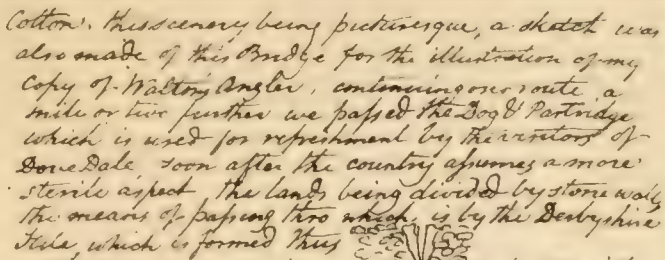 Cotton. this scenery being picturesque, a sketch was
also made of this Bridge for the illustration of my
Copy of Waltons Angler, continuing our route a
mile or two further we passed the Dog & Partridge
which is used for refreshment by the visitors of
Dove Dale, soon after the country assumes a more
sterile aspect the lands being divided by stone walls
the means of passing thro which, is by the Derbyshire
Stile, which is formed thus